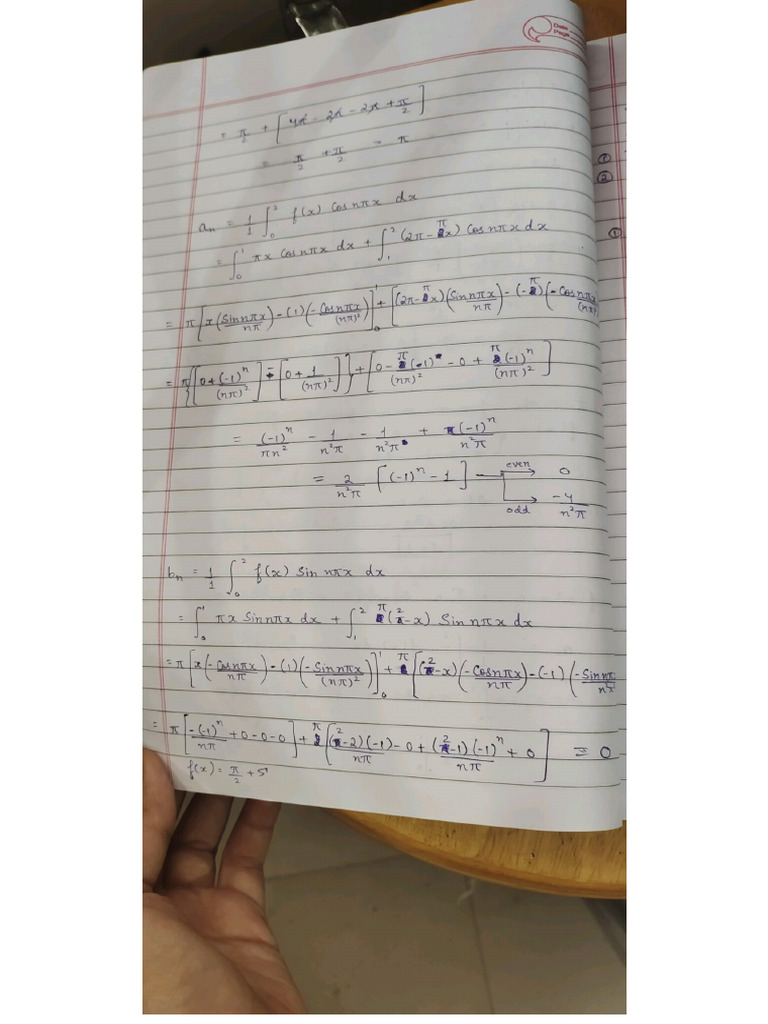 Date
Page
= π/2 + [4π - 2π - 2π + π/2]
= π/2 + π/2 = π
aₙ = 1/1 ∫₀² f(x) Cos nπx dx
= ∫₀¹ πx Cos nπx dx + ∫₁² (2π - πx) Cos nπx dx
①
②
①
= π [x (Sin nπx / nπ) - (1) (-Cos nπx / (nπ)²)]₀¹ + [(2π - πx) (Sin nπx / nπ) - (-π) (-Cos nπx / (nπ)
= π {[0 + (-1)ⁿ / (nπ)²] - [0 + 1 / (nπ)²]} + [0 - π (1) / (nπ)² - 0 + π (-1)ⁿ / (nπ)²]
= (-1)ⁿ / πn² - 1 / n²π - 1 / n²π + (-1)ⁿ / n²π
= 2 / n²π [(-1)ⁿ - 1] even → 0
odd → -4 / n²π
bₙ = 1/1 ∫₀² f(x) Sin nπx dx
= ∫₀¹ πx Sin nπx dx + ∫₁² π (2 - x) Sin nπx dx
= π [x (-Cos nπx / nπ) - (1) (-Sin nπx / (nπ)²)]₀¹ + π [(2 - x) (-Cos nπx / nπ) - (-1) (-Sin nπ / n²
= π [-(-1)ⁿ / nπ + 0 - 0 - 0] + π [(2 - 2) (-1) - 0 / nπ + (2 - 1) (-1)ⁿ / nπ + 0] = 0
f(x) = π/2 +